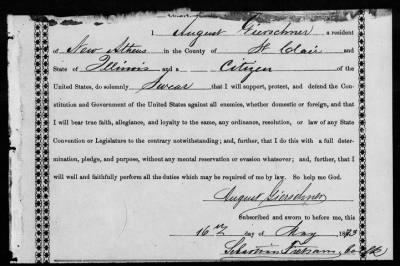 I August Gierschner a resident
of New Athens in the County of St Clair and
State of Illinois and a Citizen of the
United States, do solemnly Swear that I will support, protect, and defend the Con-
stitution and Government of the United States against all enemies, whether domestic or foreign, and that
I will bear true faith, allegiance, and loyalty to the same, any ordinance, resolution, or law of any State
Convention or Legislature to the contrary notwithstanding; and, further, that I do this with a full deter-
mination, pledge, and purpose, without any mental reservation or evasion whatsoever; and, further, that I
will well and faithfully perform all the duties which may be required of me by law. So help me God.
August Gierschner
Subscribed and sworn to before me, this
16th day of May 1873
Sebastian